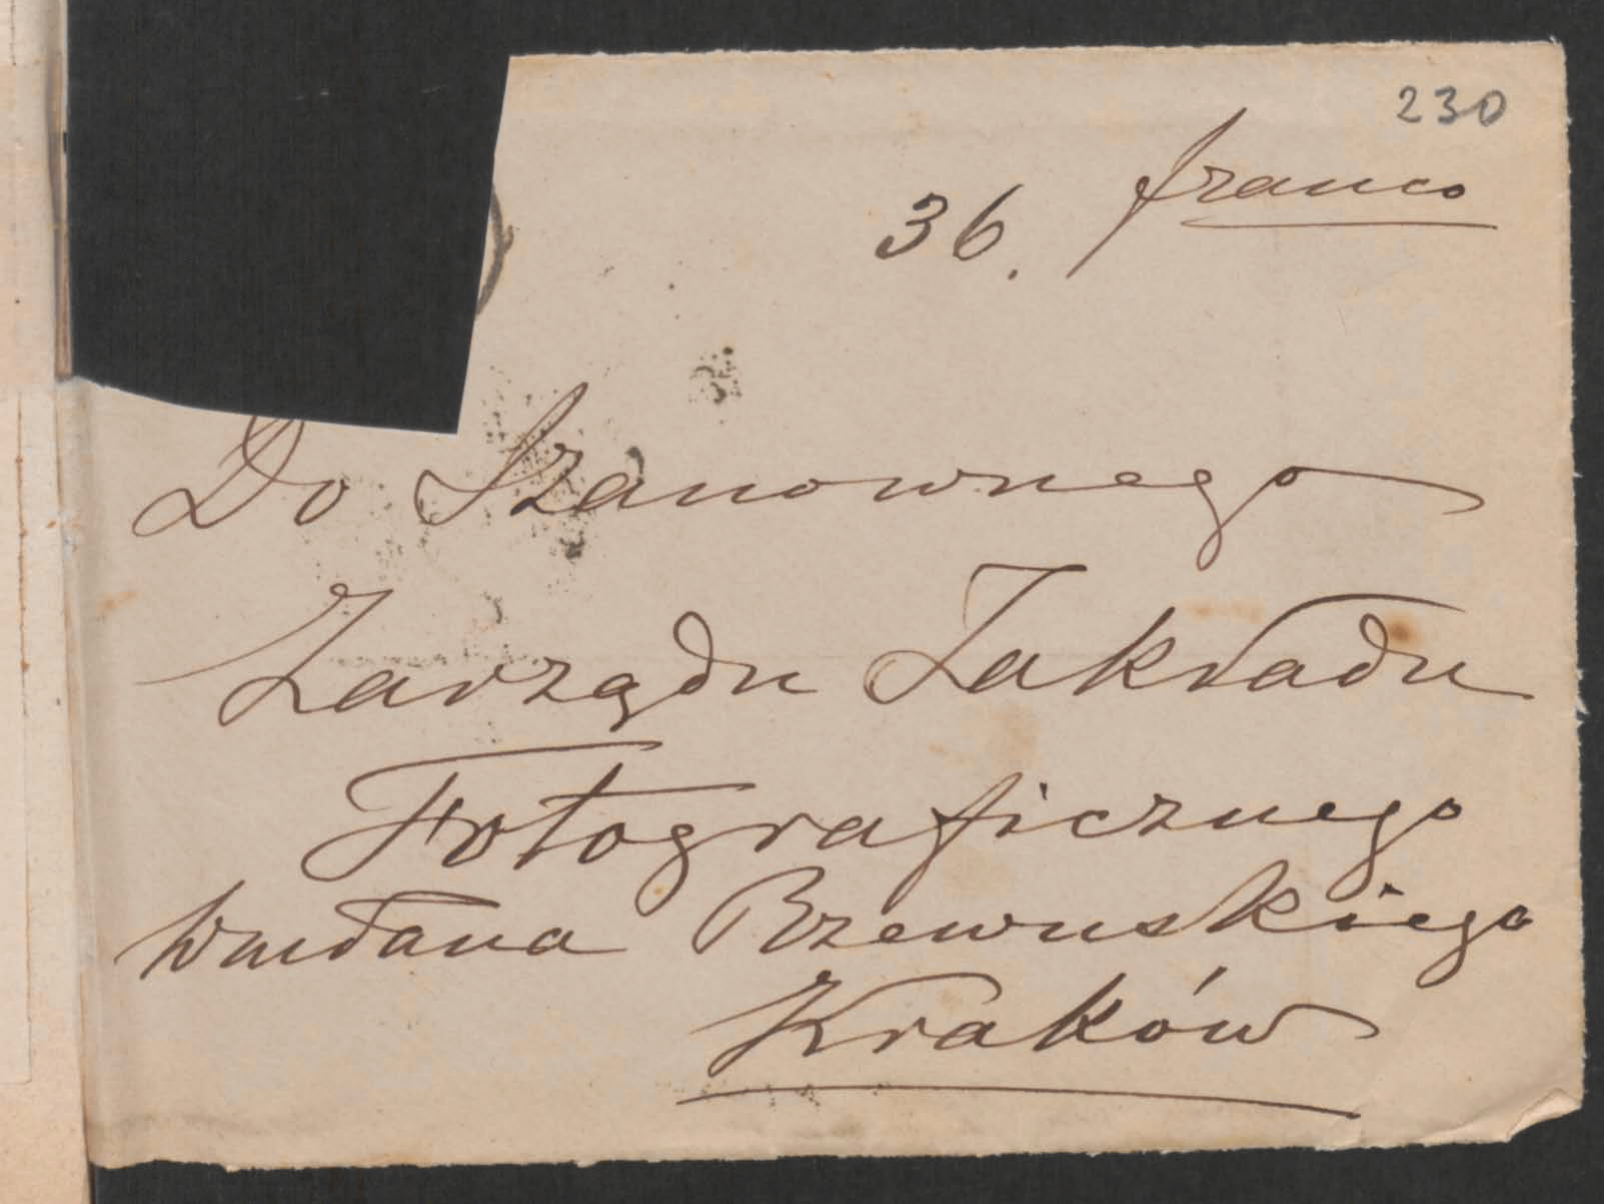 230
36. franco
Do Szanownego
Zarządu Zakładu
Fotograficznego
Rzewuskiego
Kraków